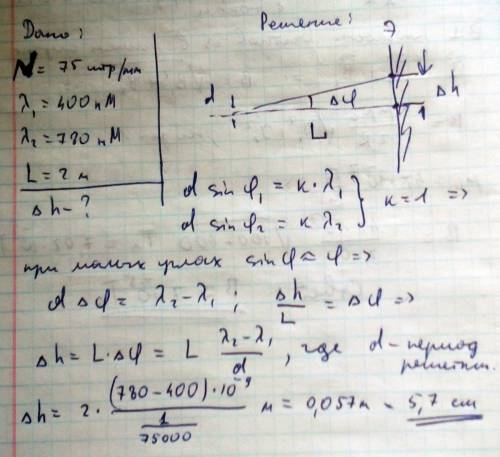 Дано:
Решение:
N = 75 штр/мм
λ₁ = 400 нм
λ₂ = 780 нм
L = 2 м
Δh - ?
d
Δφ
L
Δh
d sin φ₁ = к · λ₁
d sin φ₂ = к λ₂
} к = 1 =>
при малых углах sin φ ≈ φ =>
d Δφ = λ₂ - λ₁ ; Δh/L = Δφ =>
Δh = L · Δφ = L (λ₂ - λ₁)/d , где d - период
решетки.
Δh = 2 · ((780 - 400) · 10⁻⁹)/(1/75000) м = 0,057 м - 5,7 cm